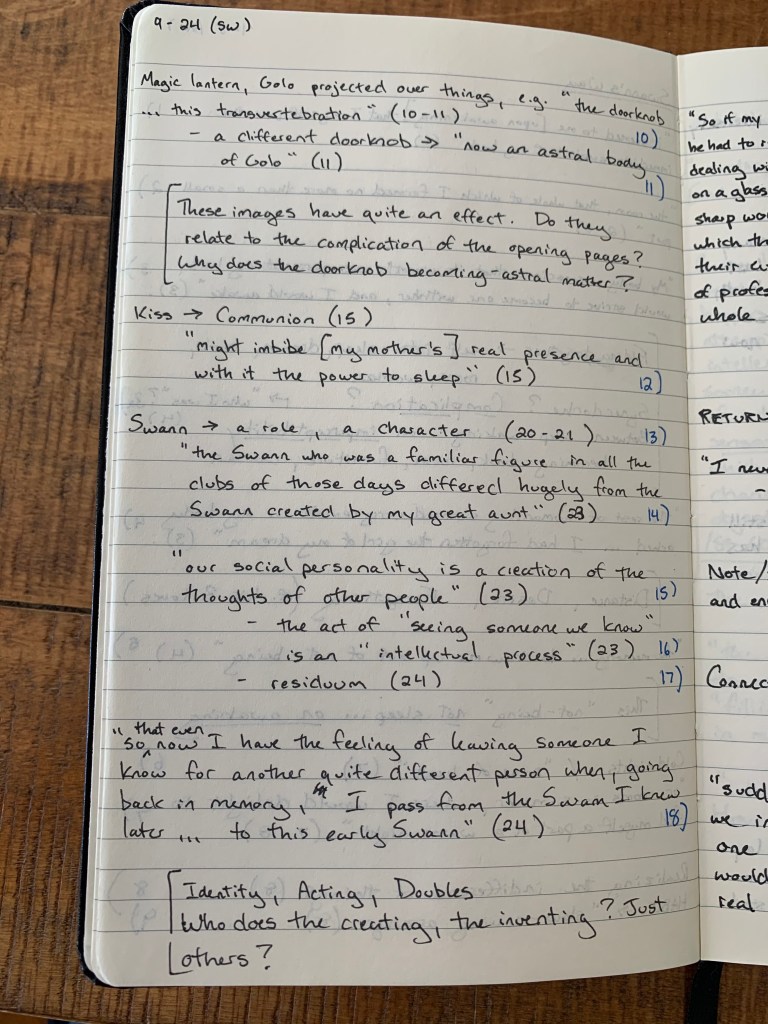 9-24 (SW)
Magic lantern, Golo projected over things, e.g. "the doorknob
... this transvertebration" (10-11) 10)
- a different doorknob → "now an astral body
of Golo" (11) 11)
[These images have quite an effect. Do they
relate to the complication of the opening pages?
Why does the doorknob becoming-astral matter?
Kiss → Communion (15)
"might imbibe [my mother's] real presence and
with it the power to sleep" (15) 12)
Swann → a role, a character (20-21) 13)
"the Swann who was a familiar figure in all the
clubs of those days differed hugely from the
Swann created by my great aunt" (23) 14)
"our social personality is a creation of the
thoughts of other people" (23) 15)
- the act of "seeing someone we know"
is an "intellectual process" (23) 16)
- residuum (24) 17)
"so that even now I have the feeling of leaving someone I
know for another quite different person when, going
back in memory, I pass from the Swann I knew
later ... to this early Swann" (24) 18)
[Identity, Acting, Doubles
Who does the creating, the inventing? Just
others?
"So if my
he had to
dealing
on a glass
sharp
which
their
of
whole
RETURN
"I
-
Note/
and
"
we
one
would
real